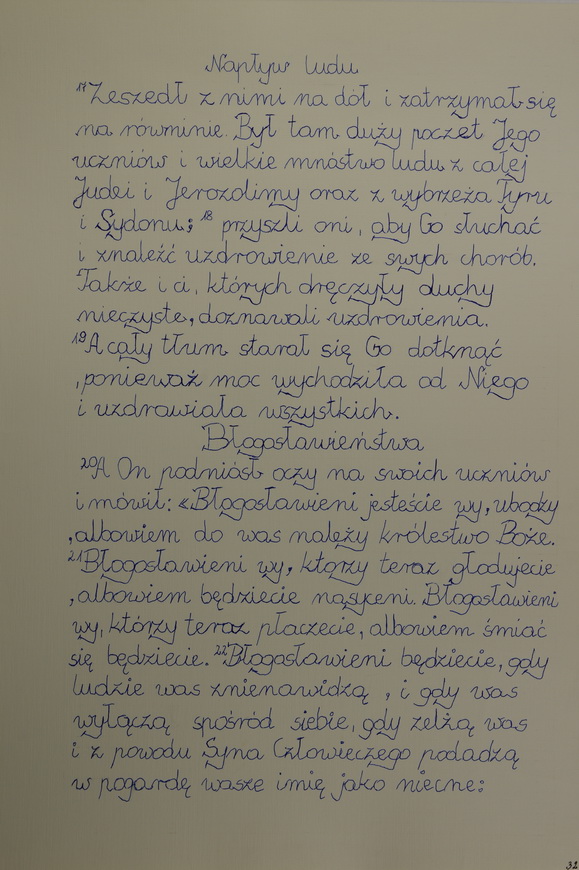 Napływ ludu
¹⁷Zeszedł z nimi na dół i zatrzymał się
na równinie. Był tam duży poczet Jego
uczniów i wielkie mnóstwo ludu z całej
Judei i Jerozolimy oraz z wybrzeża Tyru
i Sydonu; ¹⁸ przyszli oni, aby Go słuchać
i znaleźć uzdrowienie ze swych chorób.
Także i ci, których dręczyły duchy
nieczyste, doznawali uzdrowienia.
¹⁹A cały tłum starał się Go dotknąć
, ponieważ moc wychodziła od Niego
i uzdrawiała wszystkich.
Błogosławieństwa
²⁰A On podniósł oczy na swoich uczniów
i mówił: «Błogosławieni jesteście wy, ubodzy
, albowiem do was należy królestwo Boże.
²¹Błogosławieni wy, którzy teraz głodujecie
, albowiem będziecie nasyceni. Błogosławieni
wy, którzy teraz płaczecie, albowiem śmiać
się będziecie. ²²Błogosławieni będziecie, gdy
ludzie was znienawidzą , i gdy was
wyłączą spośród siebie, gdy zelżą was
i z powodu Syna Człowieczego podadzą
w pogardę wasze imię jako niecne:
32